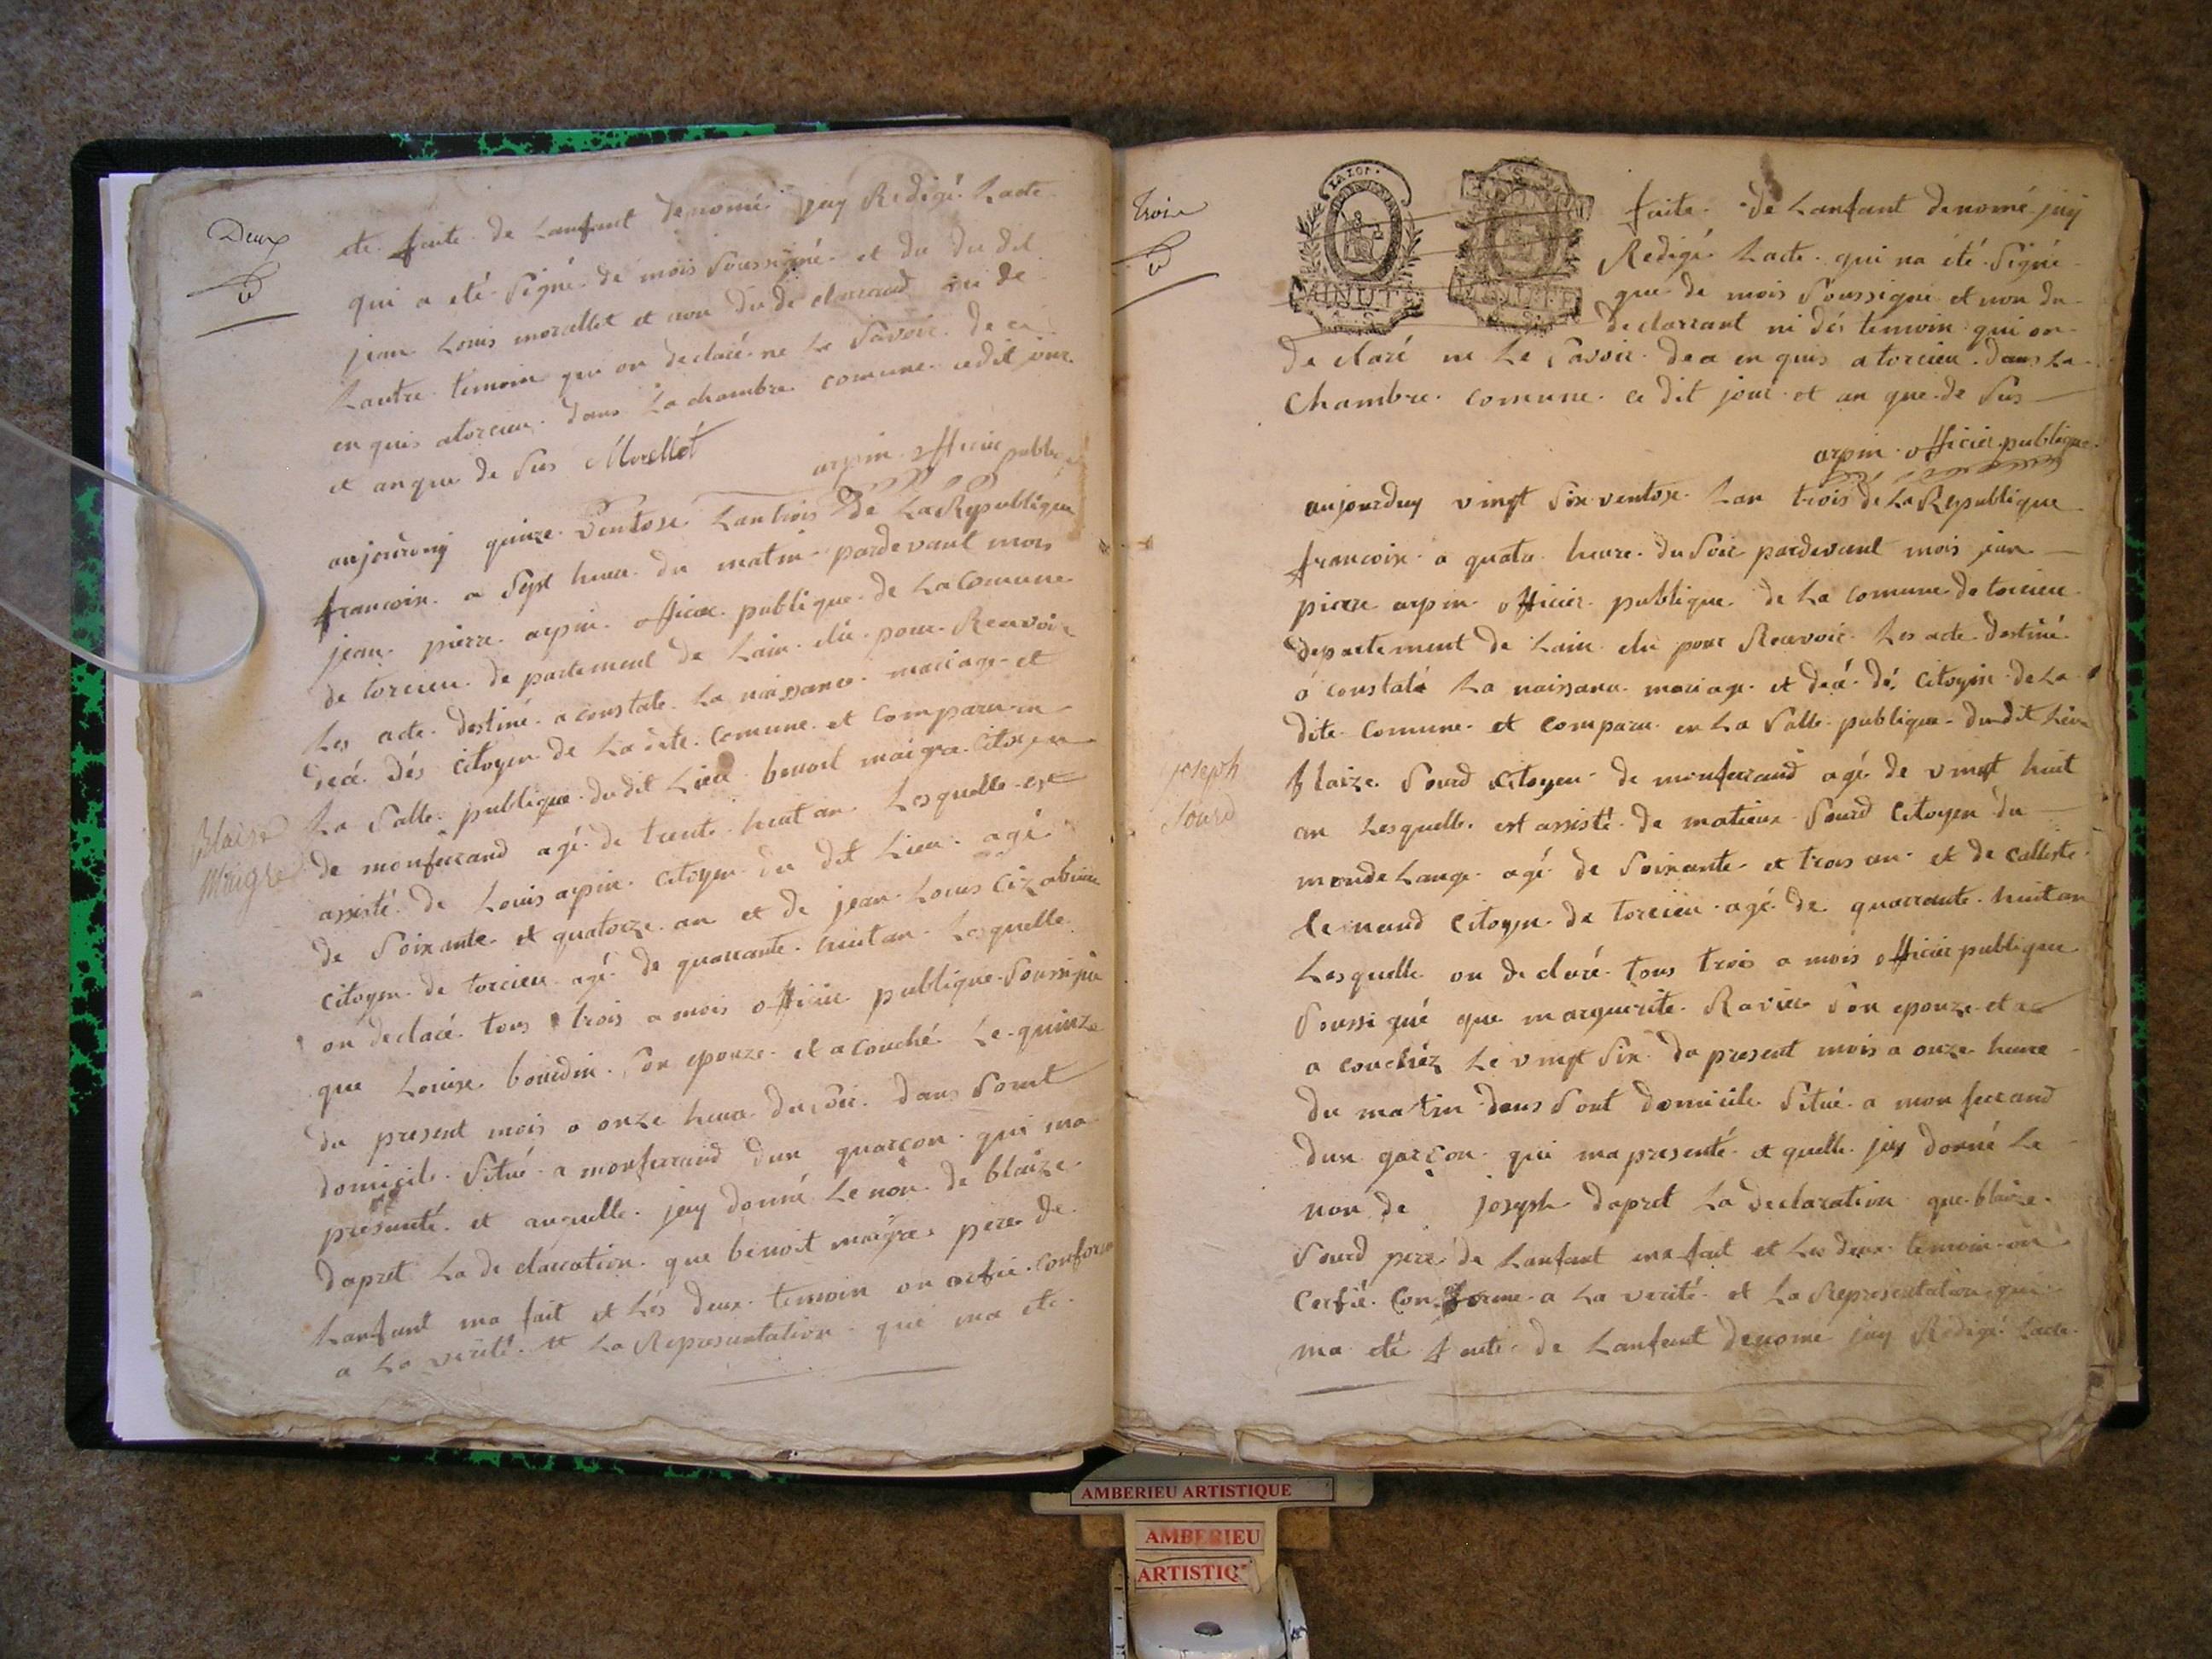 Deux
ete faite de Lanfant denomé jay Redigé Lacte
qui a eté Signé de mois Soussigné et du du dit
jean Louis morallet et non du declarrand ni de
Lautre temoin qui on declaré ne Le Savoir de ce
en quis atorcieu dans La chambre comune cedit jour
et an que de Sus Morellet
arpin officier publique
aujourduy quinze Ventose Lan trois de La Republique
francoise a Sept heure du matin pardevant mois
jean pierre arpin officier publique de La Comune
de torcieu departement de Lain elu pour Recevoir
Les acte destiné a constate La naissance mariage et
decé dés citoyen de La dite Comune et comparu en
La Salle publique du dit Lieu benoit maigre Citoyen
Blaise
Maigre
de monferrand agé de trente huit an Lesquelle est
assisté de Louis arpin Citoyen du dit Lieu agé
de Soixante et quatorze an et de jean Louis
citoyen de torcieu agé de quarrante huit an Lesquelle
on declaré tous trois a mois officier publique Soussigné
que Louise bourdin Son epouze et acouché Le quinze
du present mois a onze heure du Soir dans Sont
domicile Situé a monferrand dun guarcon qui ma
presanté et auquelle jay donné Le non de blaize
dapret La declarration que benoit maigre pere de
Lanfant ma fait et Lés deux temoin on cerfié Conforme
a La verité et La Representation qui ma ete
Trois
LA LOI
MINUTE
faite de Lanfant denomé jay
Redigé Lacte qui na été Signé
que de mois Soussigné et non du
declarrant ni dés temoin qui on
declaré ne Le Savoir de ce en quis atorcieu dans La
Chambre comune ce dit jour et an que de Sus
arpin officier publique
aujourduy vingt Six ventose Lan trois de La Republique
francoise a quatre heure du Soir pardevant mois jean
pierre arpin officier publique de La Comune de torcieu
departement de Lain elu pour Recevoir Les acte destiné
a constaté La naissance mariage et decé dés Citoyen de La
dite Comune et comparu en La Salle publique du dit Lieu
joseph
Sourd
blaize Sourd citoyen de monferrand agé de vingt huit
an Lesquelle est assisté de matieux Sourd Citoyen du
mondelange agé de Soixante et trois an et de calliste
citoyen de torcieu agé de quarrante huit an
Lesquelle on declaré tous trois a mois officier publique
Soussigné que marguerite Ravier Son epouze et
a couchéz Le vingt Six du present mois a onze heure
du matin dans Sont domicile Situé a monferrand
dun garçon qui ma presenté et quelle jay donné Le
non de joseph dapret La declaration que blaize
Sourd pere de Lanfant ma fait et Les deux temoin on
Cerfié Conforme a La verité et La Representation qui
ma eté faite de Lanfant denomé jay Redigé Lacte
AMBERIEU ARTISTIQUE
AMBERIEU
ARTISTIQ